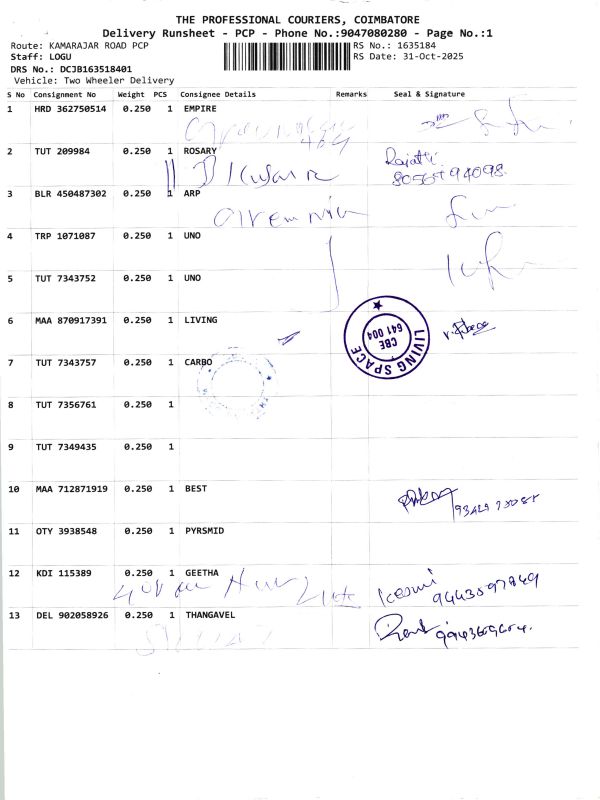 THE PROFESSIONAL COURIERS, COIMBATORE
Delivery Runsheet - PCP - Phone No.:9047080280 - Page No.:1
Route: KAMARAJAR ROAD PCP
RS No.: 1635184
Staff: LOGU
RS Date: 31-Oct-2025
DRS No.: DCJB163518401
Vehicle: Two Wheeler Delivery
S No Consignment No Weight PCS Consignee Details Remarks Seal & Signature
1 HRD 362750514 0.250 1 EMPIRE
2 TUT 209984 0.250 1 ROSARY
Rajathi
8056794098
3 BLR 450487302 0.250 1 ARP
4 TRP 1071087 0.250 1 UNO
5 TUT 7343752 0.250 1 UNO
6 MAA 870917391 0.250 1 LIVING
LIVING SPACE
CBE
641 004
7 TUT 7343757 0.250 1 CARBO
8 TUT 7356761 0.250 1
9 TUT 7349435 0.250 1
10 MAA 712871919 0.250 1 BEST
11 OTY 3938548 0.250 1 PYRSMID
12 KDI 115389 0.250 1 GEETHA
9443597849
13 DEL 902058926 0.250 1 THANGAVEL